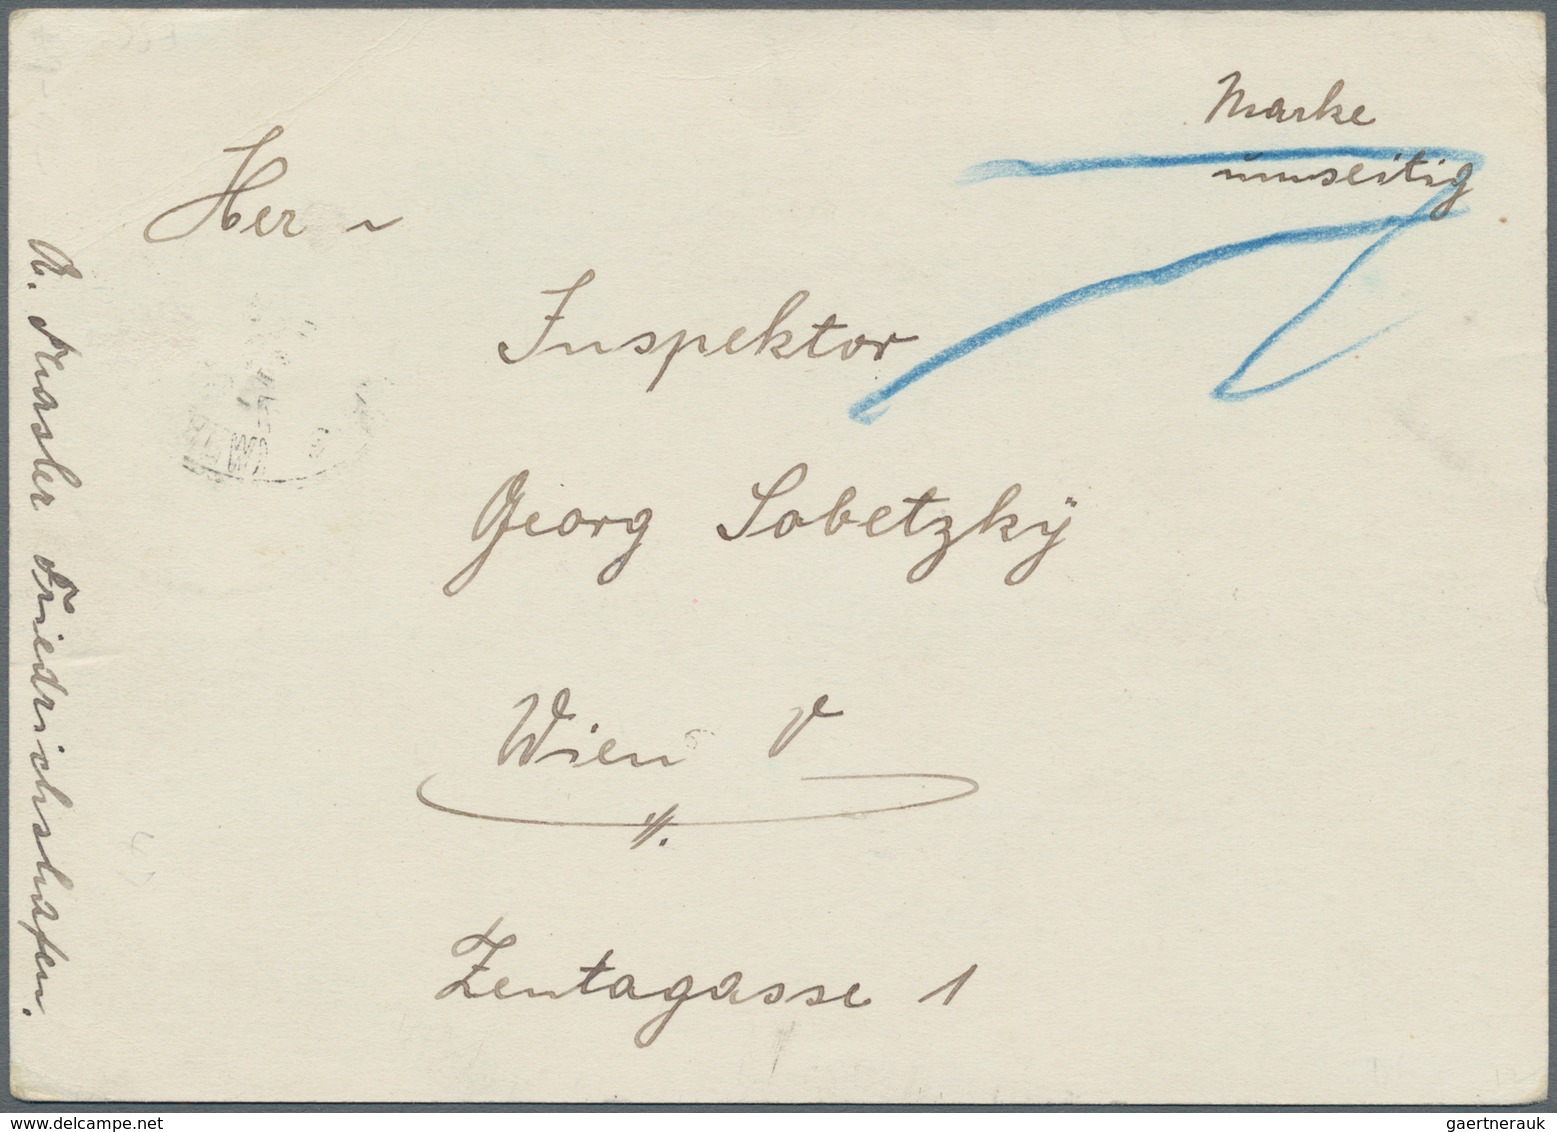 Marke
umseitig
Herrn
Inspektor
Georg Sobetzky
Wien V
Zentagasse 1
A. Friedrichshafen.
delcampe.net
gaertnerauk